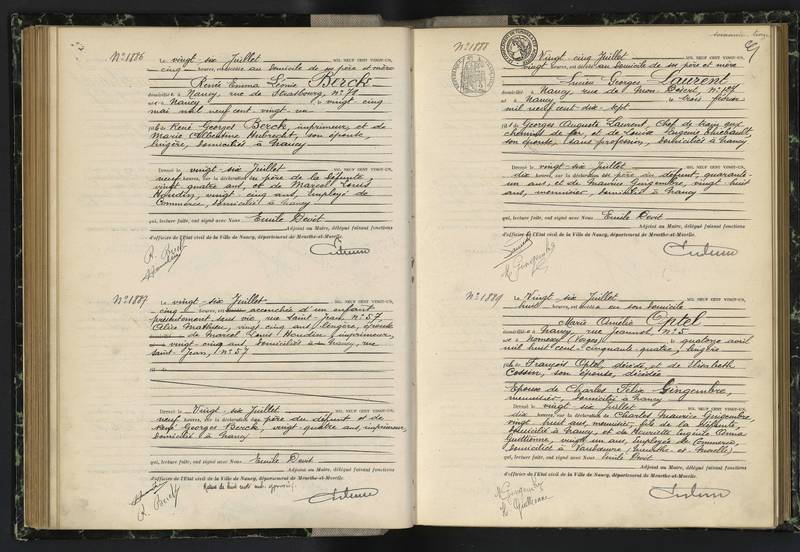 N° 1886
Le vingt-six Juillet MIL NEUF CENT VINGT-UN,
cinq heures, est décédée au domicile de ses père et mère
Renée Emma Léonie Berck
domiciliée à Nancy, rue de Strasbourg, n° 70
née à Nancy le vingt cinq
mai mil neuf cent vingt-un
fille de René Georges Berck, imprimeur, et de
Marie Albertine Aubrecht, son épouse,
lingère, domiciliés à Nancy
Dressé le vingt-six Juillet MIL NEUF CENT VINGT-UN,
neuf heures, sur la déclaration du père de la défunte,
vingt quatre ans, et de Marcel Louis
Houdin, vingt-cinq ans, employé de
Commerce, domicilié à Nancy
qui, lecture faite, ont signé avec Nous Emile Devit
Adjoint au Maire, délégué faisant fonctions
d'officier de l'Etat civil de la Ville de Nancy, département de Meurthe-et-Moselle.
R. Berck
N° 1887
Le vingt-six Juillet MIL NEUF CENT VINGT-UN,
cinq heures accouchée d'un enfant
présentement sans vie, rue Saint-Jean, n° 57,
Alice Mathieu, vingt-cinq ans, lingère, épouse
de Marcel Louis Houdin, imprimeur,
vingt-cinq ans, domiciliés à Nancy, rue
Saint-Jean, n° 57
Dressé le Vingt-six Juillet MIL NEUF CENT VINGT-UN,
neuf heures, sur la déclaration du père du défunt et de
René Georges Berck, vingt-quatre ans, imprimeur,
domiciliés à Nancy
qui, lecture faite, ont signé avec Nous Emile Devit
Adjoint au Maire, délégué faisant fonctions
d'officier de l'Etat civil de la Ville de Nancy, département de Meurthe-et-Moselle.
R. Berck
N° 1888
Le Vingt-cinq Juillet MIL NEUF CENT VINGT-UN,
vingt heures, est décédé au domicile de ses père et mère
Lucien Georges Laurent
domicilié à Nancy, rue de Mon Désert, n° 107
né à Nancy le trois février
mil neuf cent dix-sept
fils de Georges Auguste Laurent, chef de train aux
chemins de fer, et de Louise Eugénie Thiébault,
son épouse, sans profession, domiciliés à Nancy
Dressé le vingt-six Juillet MIL NEUF CENT VINGT-UN,
dix heures, sur la déclaration du père du défunt, quarante-
un ans, et de Maurice Gingembre, vingt huit
ans, menuisier, domicilié à Nancy
qui, lecture faite, ont signé avec Nous Emile Devit
Adjoint au Maire, délégué faisant fonctions
d'officier de l'Etat civil de la Ville de Nancy, département de Meurthe-et-Moselle.
M Gingembre
N° 1889
Le Vingt-six Juillet MIL NEUF CENT VINGT-UN,
huit heures, est décédée en son domicile
Marie Amélie Optel
domiciliée à Nancy, rue Jeannot, n° 5
née à Nomexy (Vosges) le quatorze avril
mil huit cent cinquante-quatre, lingère
fille de François Optel, décédé, et de Elisabeth
Cossin, son épouse, décédée
Epouse de Charles Félix Gingembre,
menuisier, domicilié à Nancy
Dressé le vingt-six Juillet MIL NEUF CENT VINGT-UN,
dix heures, sur la déclaration de Charles Maurice Gingembre,
vingt huit ans, menuisier, fils de la défunte,
domicilié à Nancy, et de Henriette Eugénie Emma
Guillienne, vingt un ans, employée de Commerce,
domiciliée à Vandœuvre (Meurthe et Moselle)
qui, lecture faite, ont signé avec Nous Emile Devit
Adjoint au Maire, délégué faisant fonctions
d'officier de l'Etat civil de la Ville de Nancy, département de Meurthe-et-Moselle.
M Gingembre
H. Guillienne